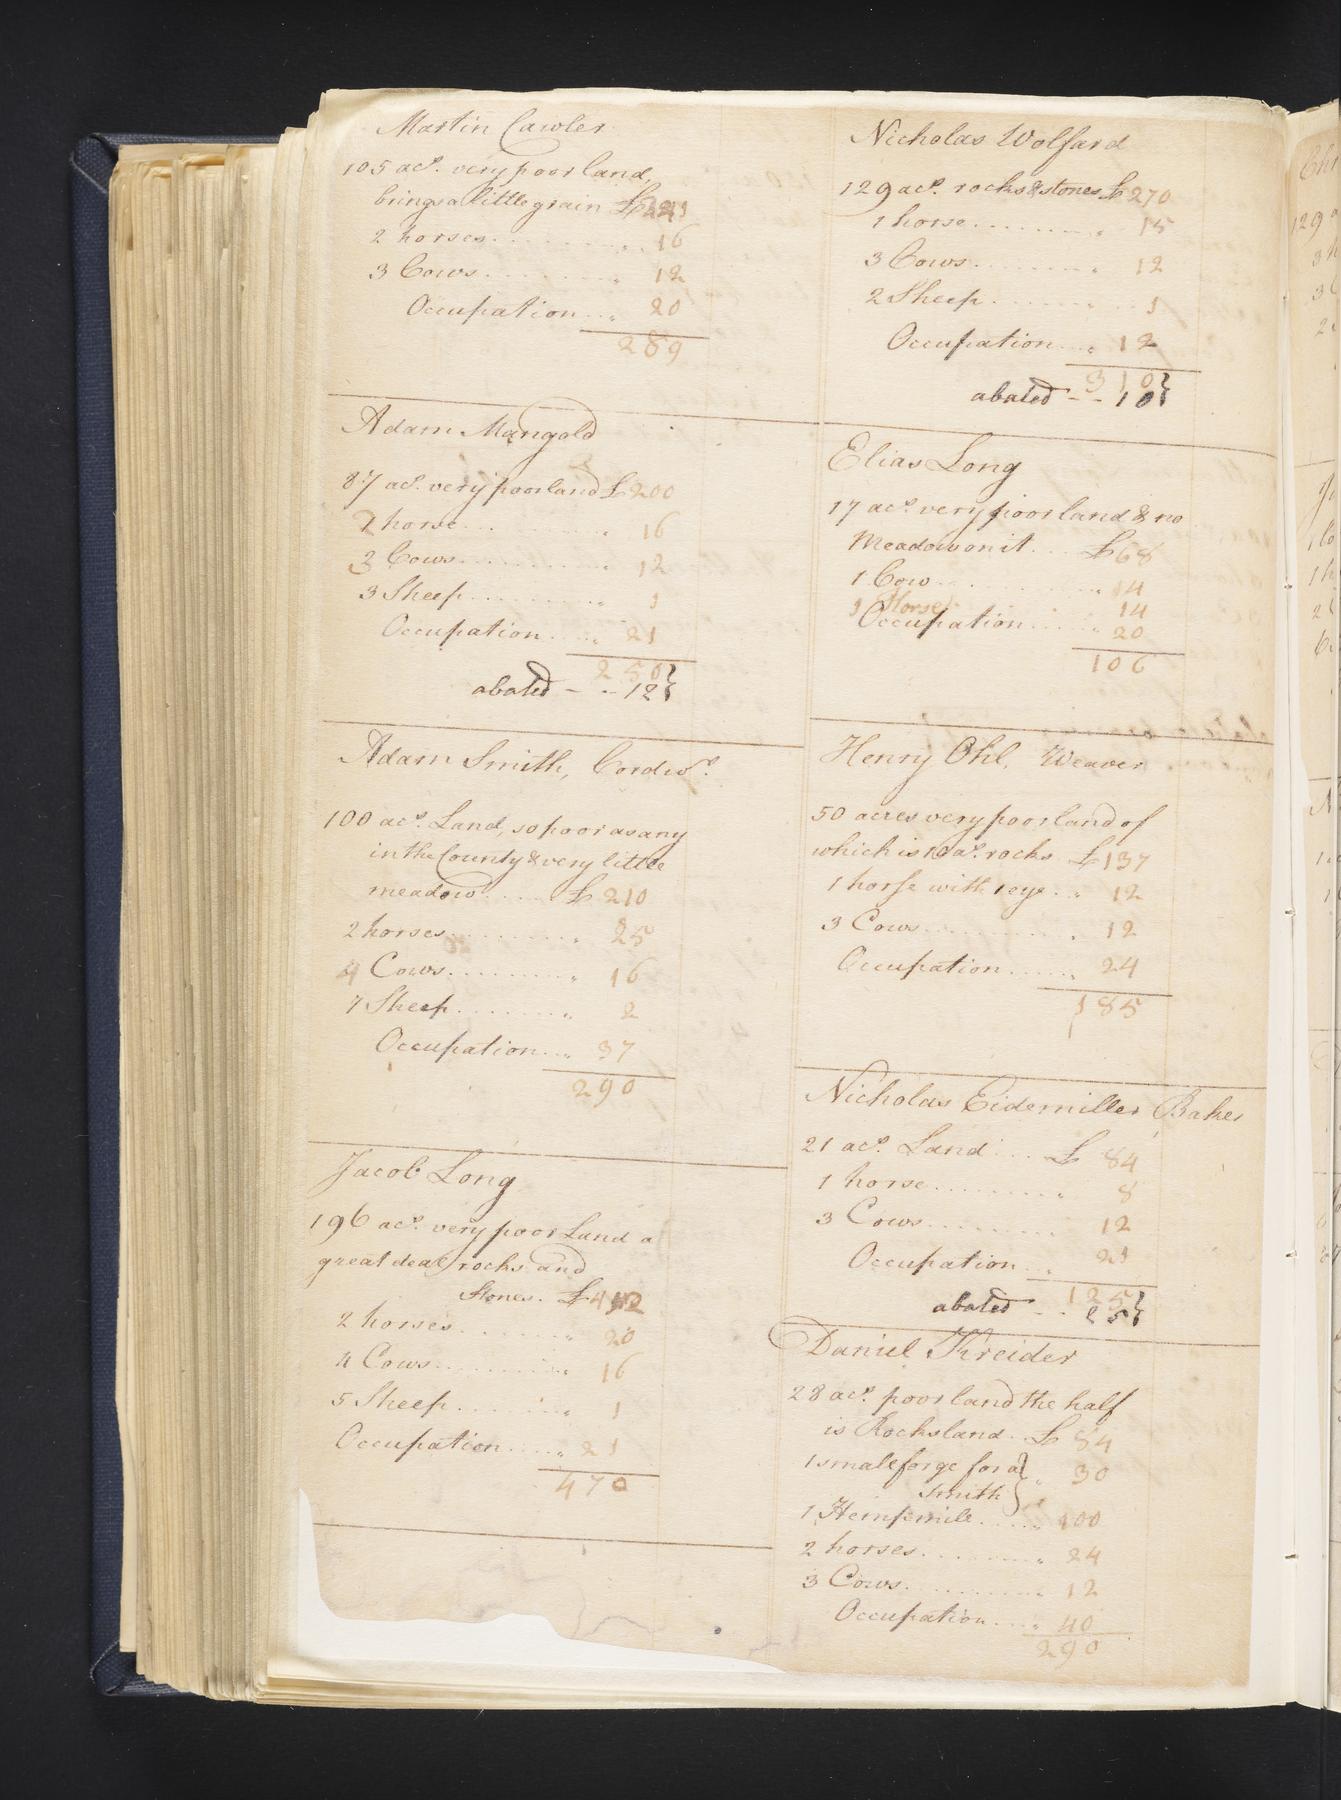 Martin Cawler
105 acs. very poor land,
brings a little grain £241
2 horses 16
3 Cows 12
Occupation 20
289
Adam Mangold
87 acs. very poor land £200
2 horse 16
3 Cows 12
3 Sheep 1
Occupation 21
250
abated 12
Adam Smith, Cordwr.
100 acs. Land, so poor as any
in the County & very little
meadow £210
2 horses 25
4 Cows 16
7 Sheep 2
Occupation 37
290
Jacob Long
196 acs. very poor Land a
great deal rocks and
Stones. £412
2 horses 20
4 Cows 16
5 Sheep 1
Occupation 21
470
Nicholas Wolfard
129 acs. rocks & stones £270
1 horse 15
3 Cows 12
2 Sheep 1
Occupation 12
310
abated 10
Elias Long
17 acs. very poor land & no
Meadow on it £68
1 Cow 4
1 Horse 14
Occupation 20
106
Henry Ohl, Weaver
50 acres very poor land of
which is 10 as. rocks £137
1 horse with 1 eye 12
3 Cows 12
Occupation 24
185
Nicholas Eidemiller Baker
21 acs. Land £84
1 horse 8
3 Cows 12
Occupation 21
125
abated 25
Daniel Kreider
28 acs. poor land the half
is Rocksland £84
1 small forge for a
Smith 30
1 Hempmill 100
2 horses 24
3 Cows 12
Occupation 40
290